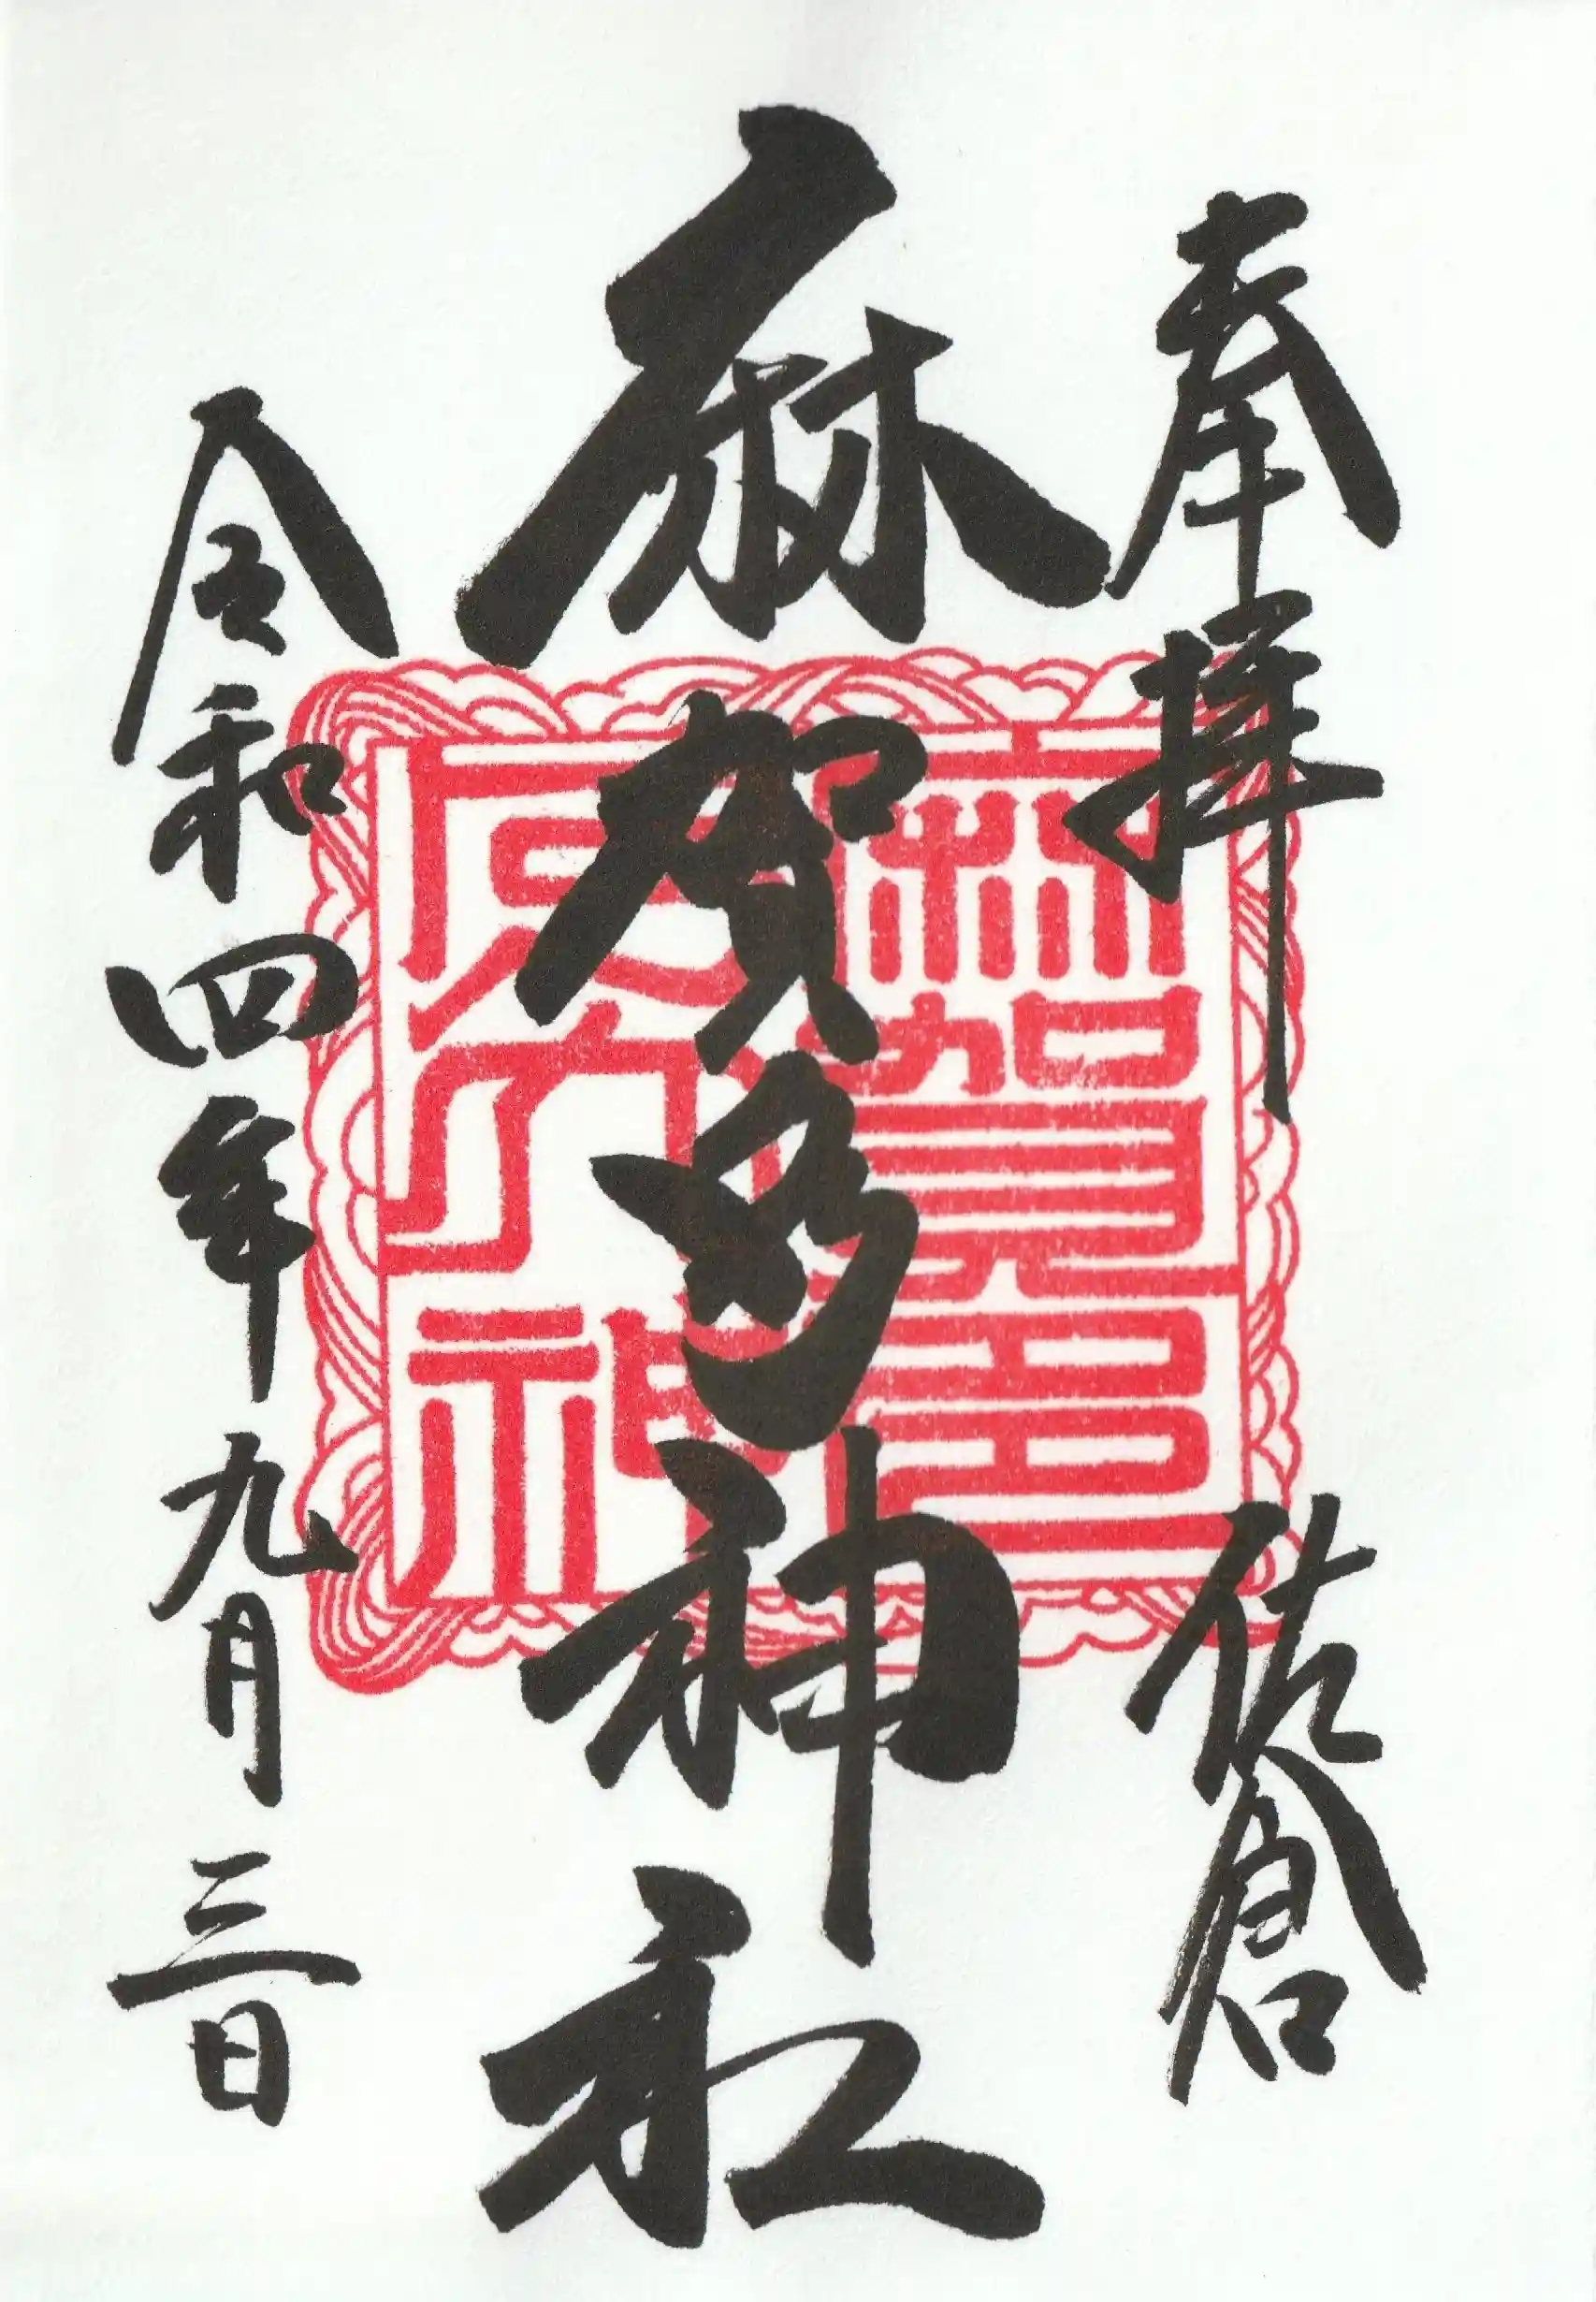 奉拝 佐倉
麻賀多神社
令和四年九月三日
麻賀多
大神